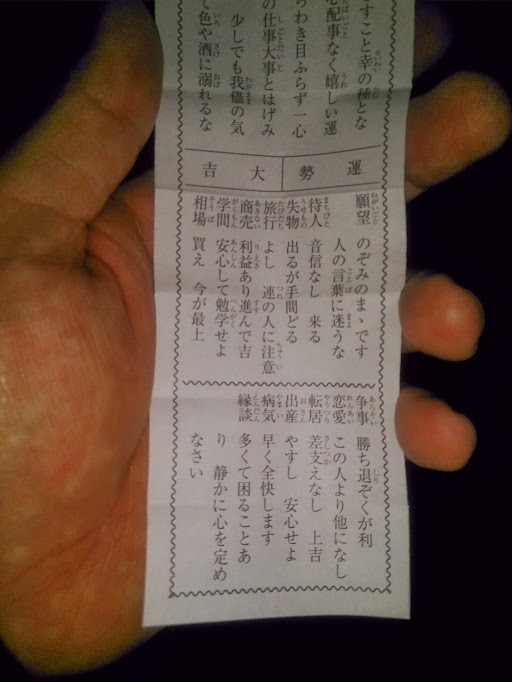 すこと幸の種とな
心配事なく嬉しい運
らわき目ふらず一心
の仕事大事とはげみ
少しでも我儘の気
て色や酒に溺れるな
運勢 大吉
願望 のぞみのまゝです
人の言葉に迷うな
待人 音信なし 来る
失物 出るが手間どる
旅行 よし 連の人に注意
商売 利益あり進んで吉
学問 安心して勉学せよ
相場 買え 今が最上
争事 勝ち退ぞくが利
恋愛 この人より他になし
転居 差支えなし 上吉
出産 やすし 安心せよ
病気 早く全快します
縁談 多くて困ることあ
り 静かに心を定め
なさい